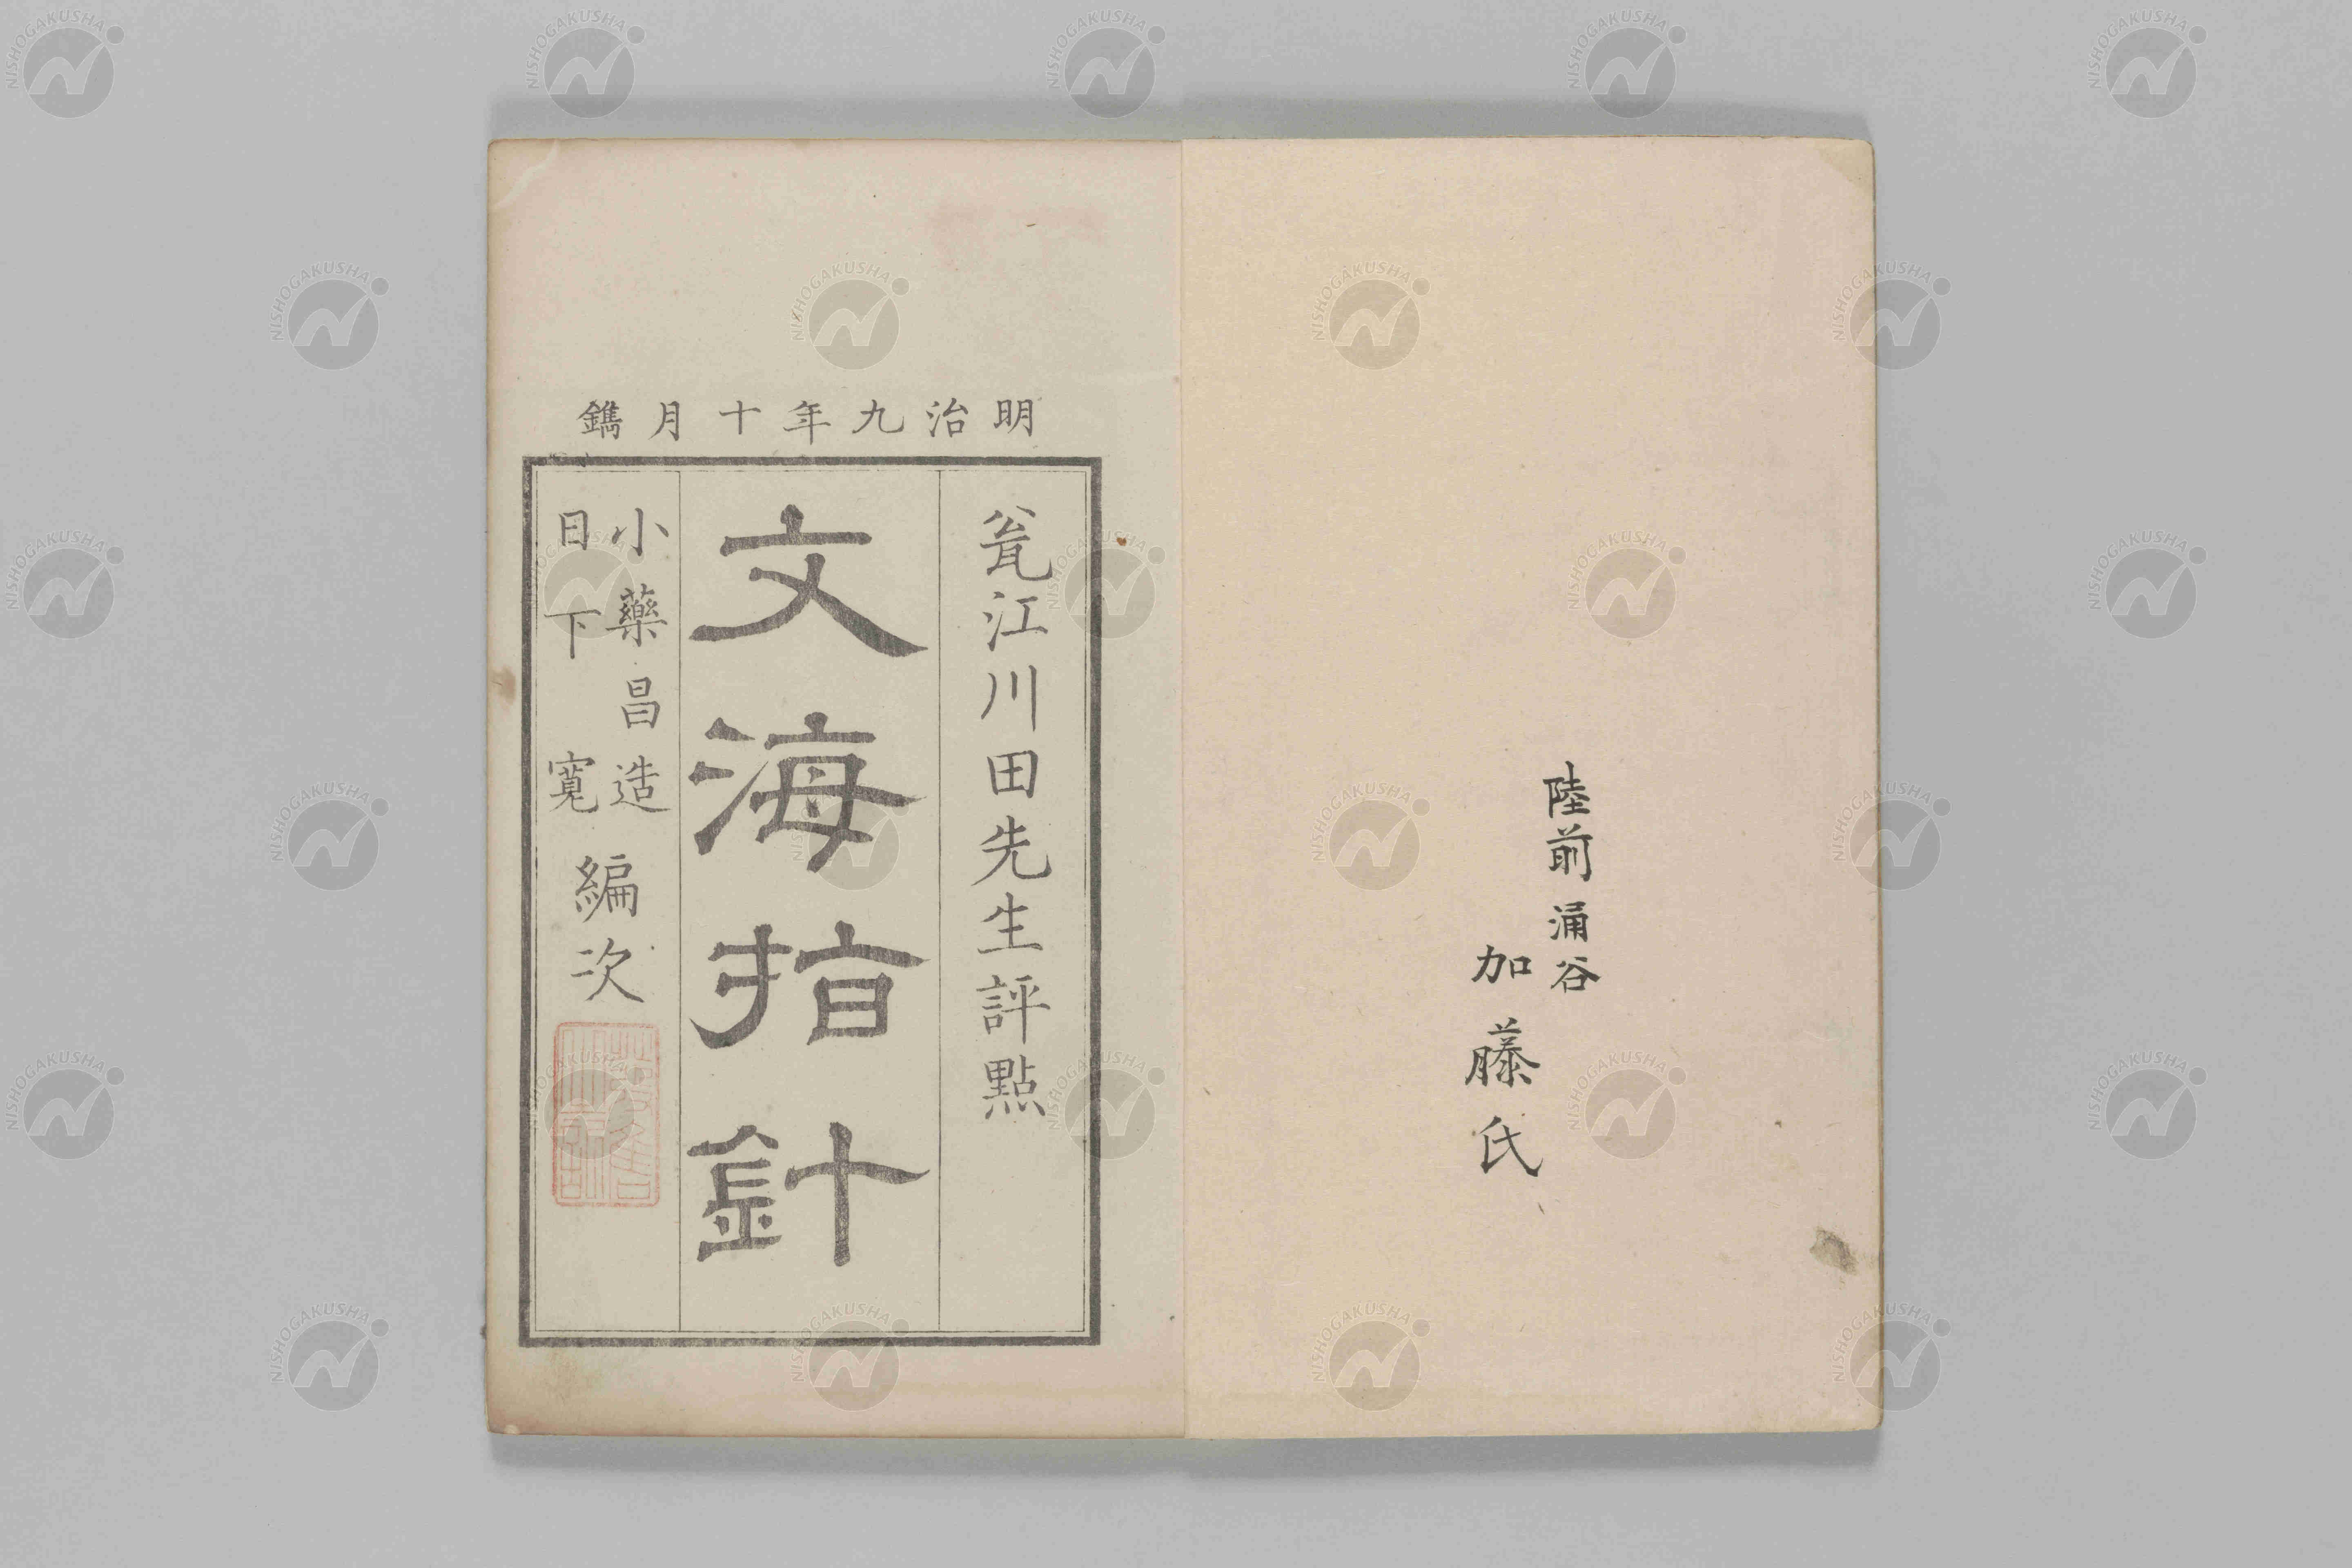 陸前涌谷
加藤氏
明治九年十月鐫
瓮江川田先生評點
文海指針
小藥昌造
日下寬
編次
NISHOGAKUSHA